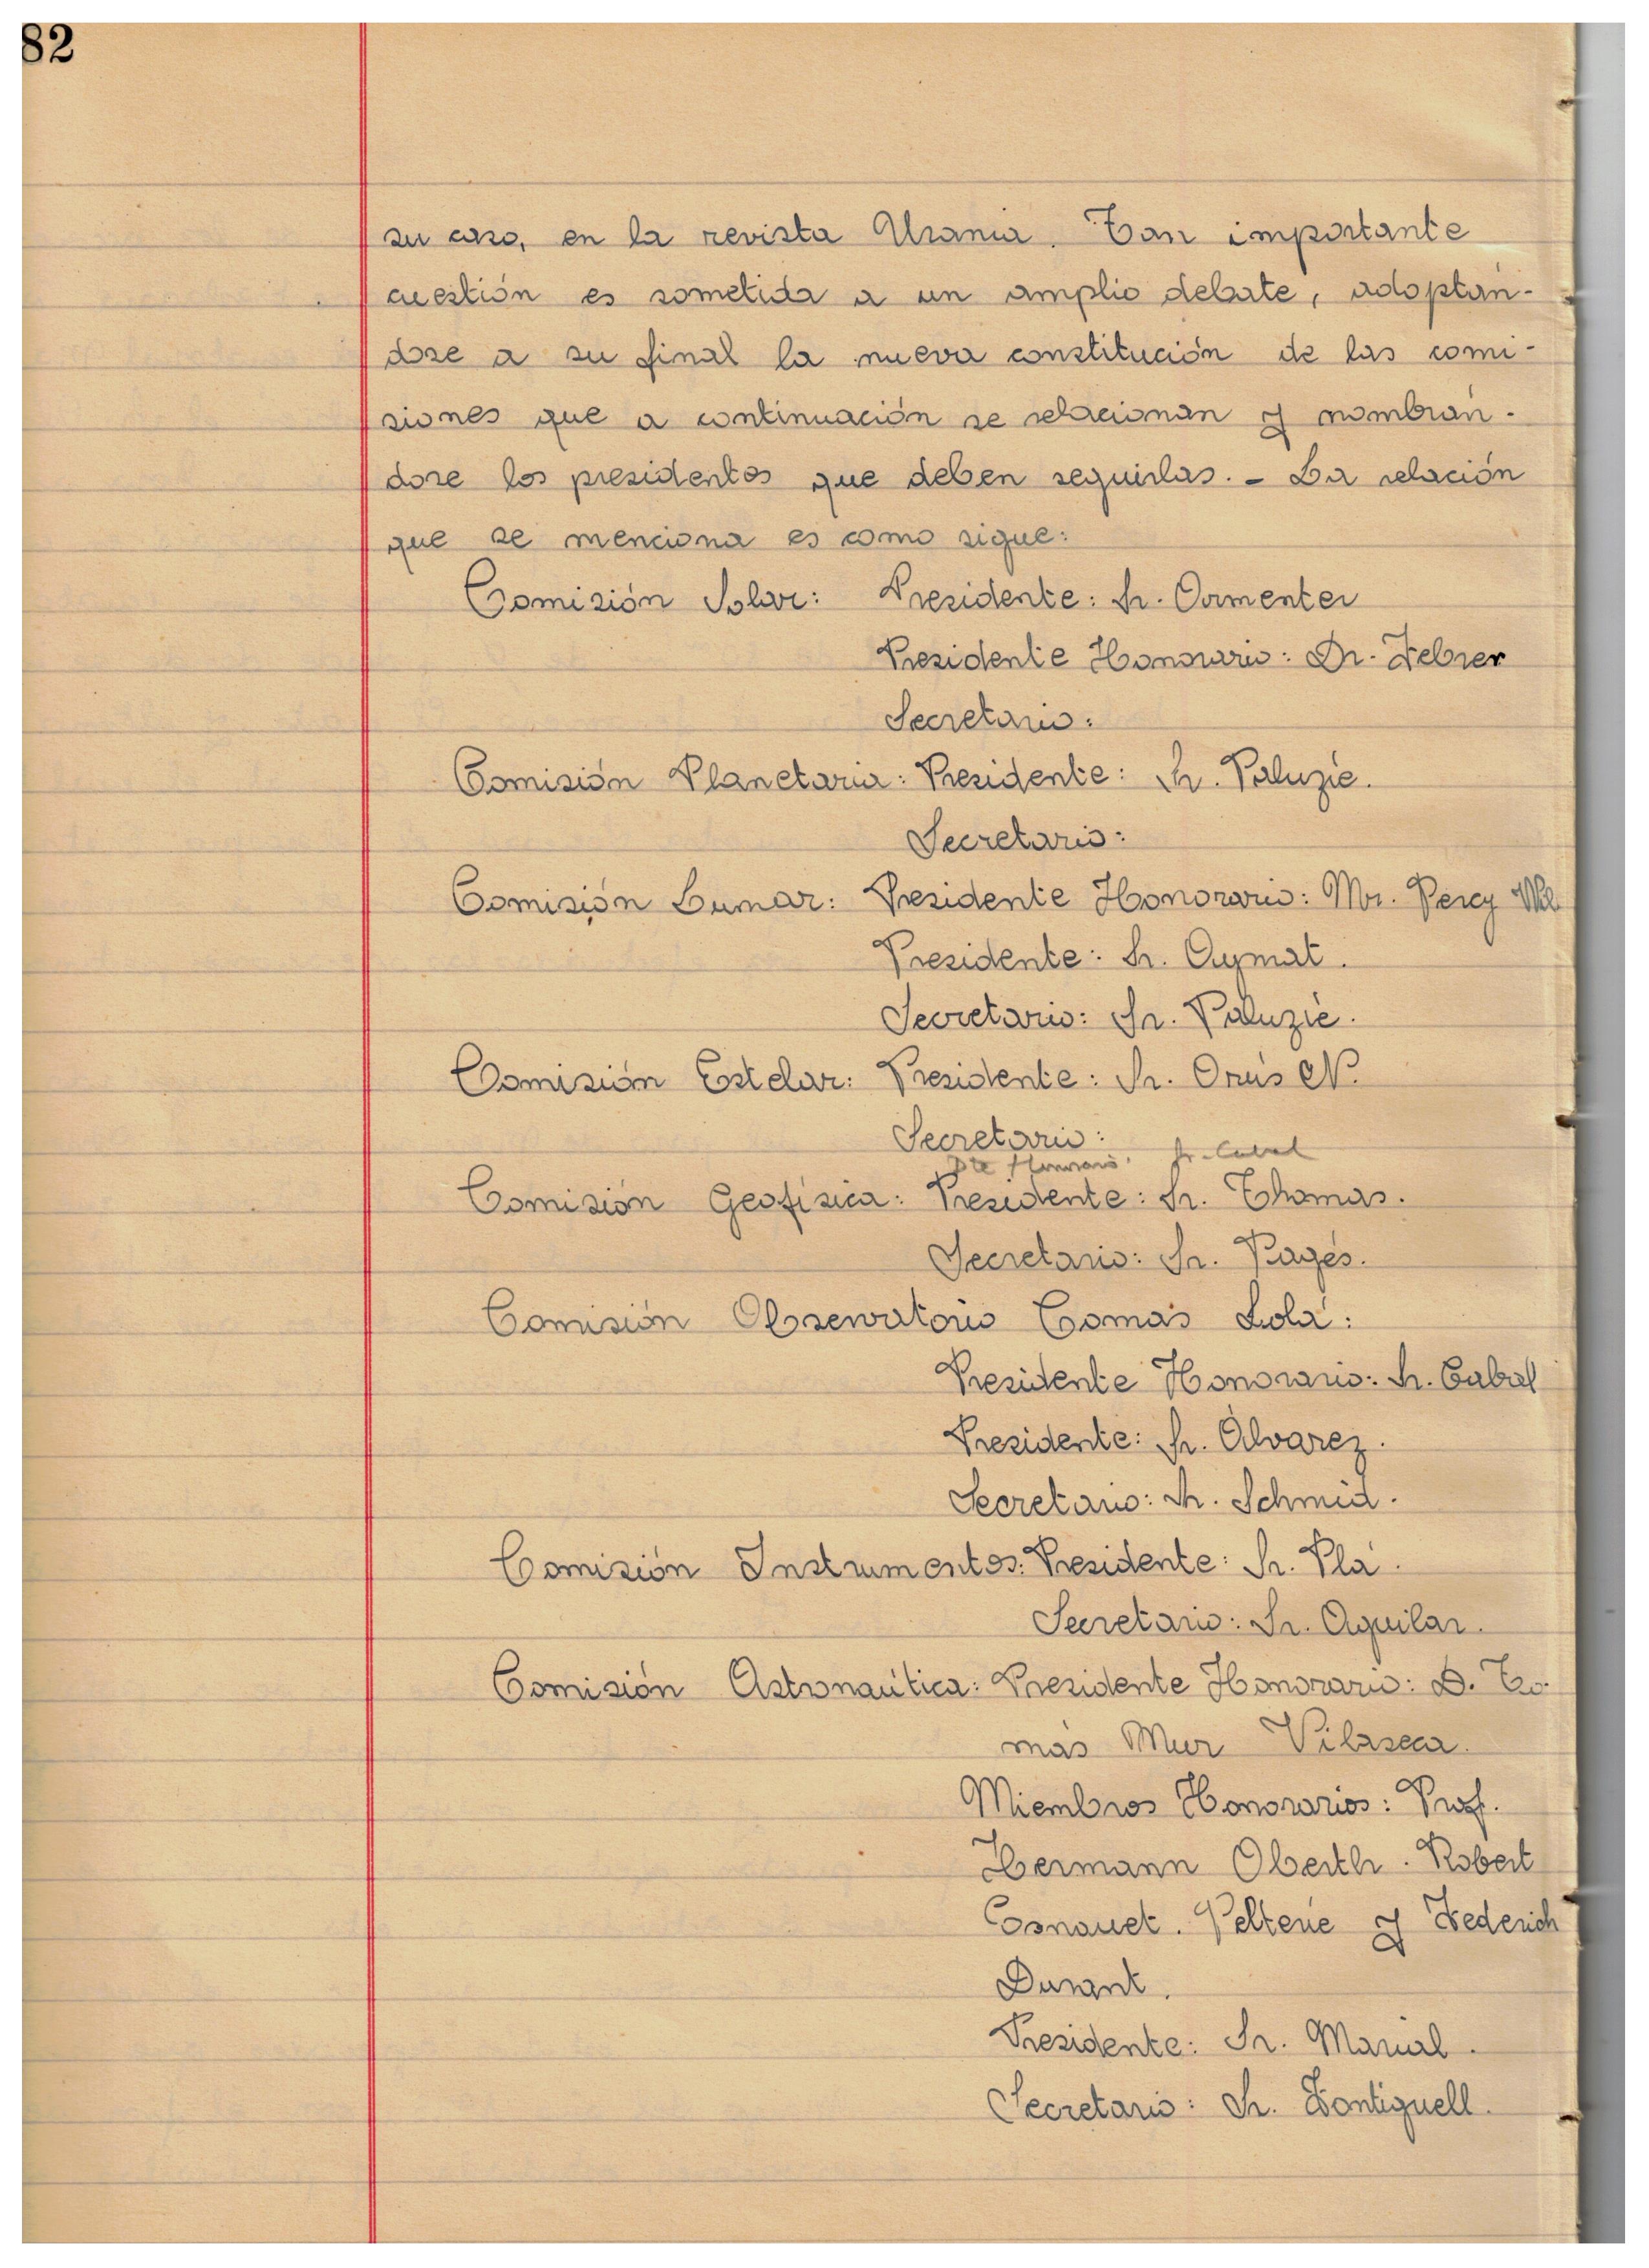 82
su caso, en la revista Urania. Tan importante
cuestión es sometida a un amplio debate, adoptán-
dose a su final la nueva constitución de las comi-
siones que a continuación se relacionan y nombrán-
dose los presidentes que deben seguirlas. - La relación
que se menciona es como sigue:
Comisión Solar: Presidente: Sr. Armenter
Presidente Honorario: Dr. Febrer
Secretario:
Comisión Planetaria: Presidente: Sr. Paluzíe.
Secretario:
Comisión Lunar: Presidente Honorario: Mr. Percy
Presidente: Sr. Aymat.
Secretario: Sr. Paluzíe.
Comisión Estelar: Presidente: Sr. Orús N.
Secretario:
Pte Honorario: Sr. Cabal
Comisión Geofísica: Presidente: Sr. Thomas.
Secretario: Sr. Pagés.
Comisión Observatorio Comas Solá:
Presidente Honorario: Sr. Cabal
Presidente: Sr. Alvarez.
Secretario: Sr. Schmid.
Comisión Instrumentos: Presidente: Sr. Plá.
Secretario: Sr. Aguilar.
Comisión Astronáutica: Presidente Honorario: D. To-
más Mur Vilaseca.
Miembros Honorarios: Prof.
Hermann Oberth. Robert
y Federich
Durant.
Presidente: Sr. Marial.
Secretario: Sr. Fontiguell.